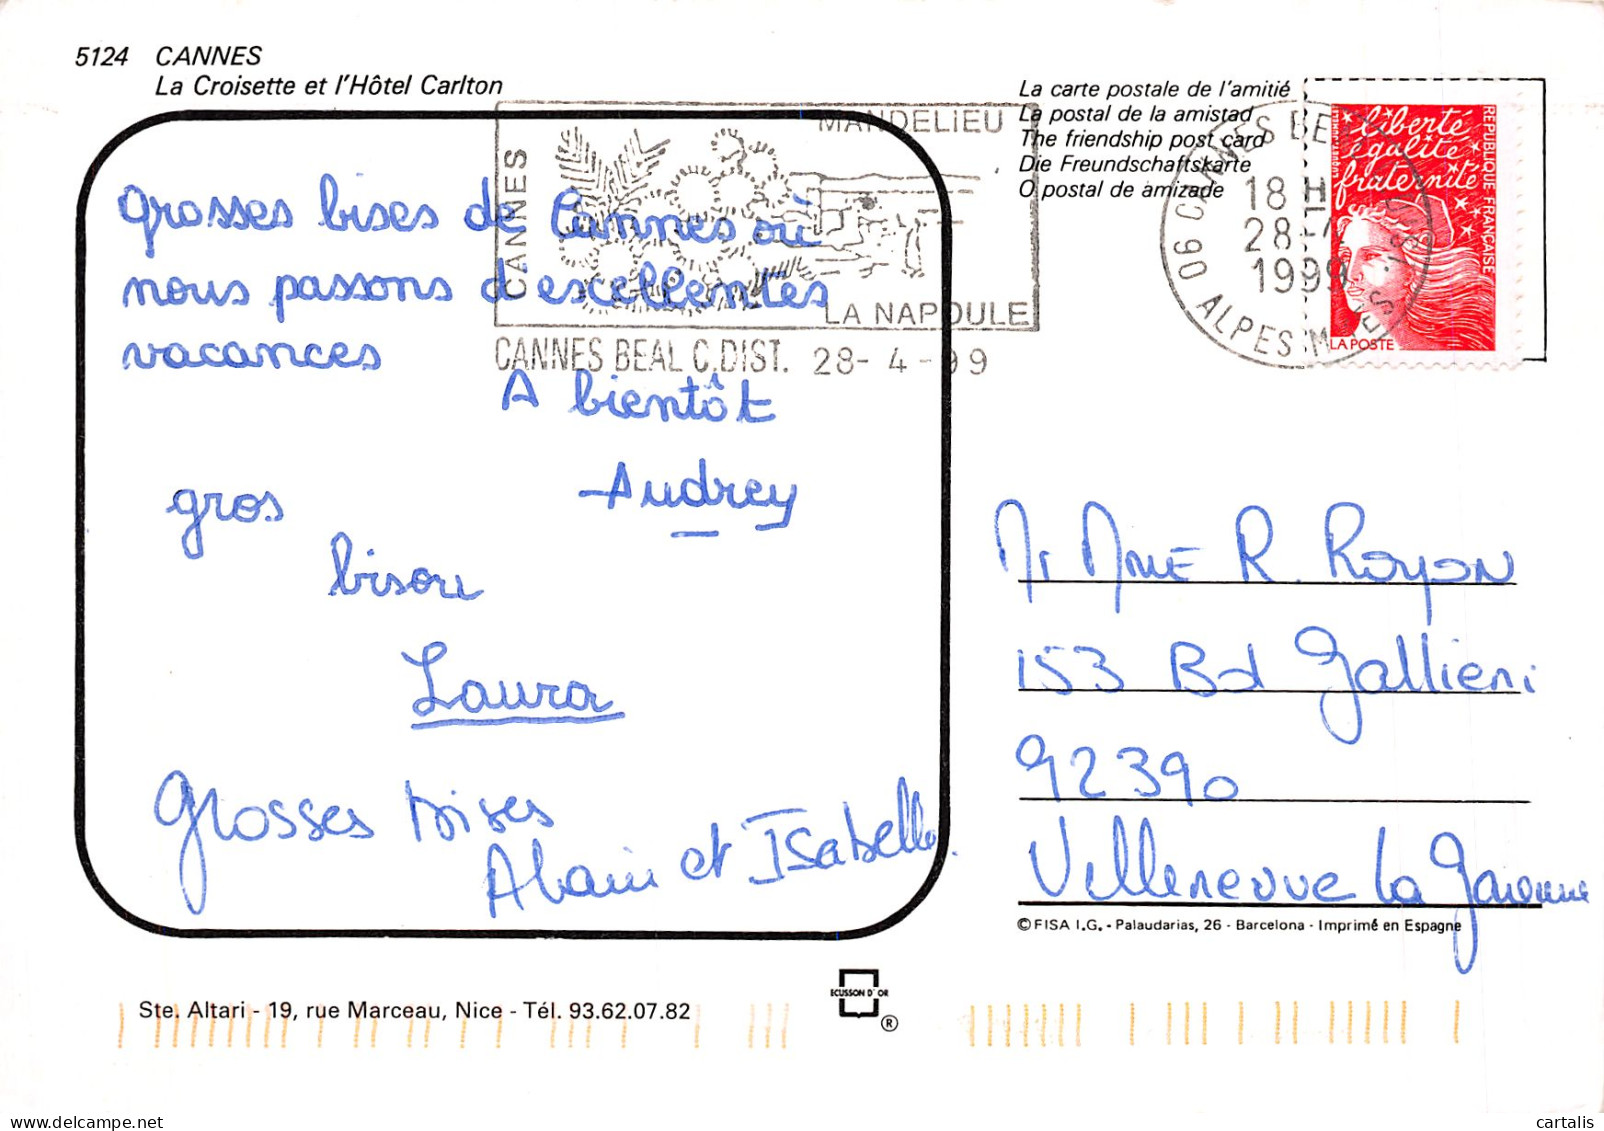 5124 CANNES
La Croisette et l'Hôtel Carlton
La carte postale de l'amitié
La postal de la amistad
The friendship post card
Die Freundschaftskarte
O postal de amizade
CANNES
MANDELIEU
LA NAPOULE
CANNES BEAL C.DIST. 28-4-99
18 H
28-
1999
06 ALPES
liberté
égalité
fraternité
REPUBLIQUE FRANÇAISE
LA POSTE
Grosses bises de Cannes où
nous passons d'escellentes
vacances
A bientôt
Audrey
gros
bisou
Laura
Grosses bises
Alain et Isabelle.
M Mme R. Royon
153 Bd Gallieni
92390
Villeneuve la Garenne
©FISA I.G. - Palaudarias, 26 - Barcelona - Imprimé en Espagne
Ste. Altari - 19, rue Marceau, Nice - Tél. 93.62.07.82
ECUSSON D'OR
®
delcampe.net
cartalis